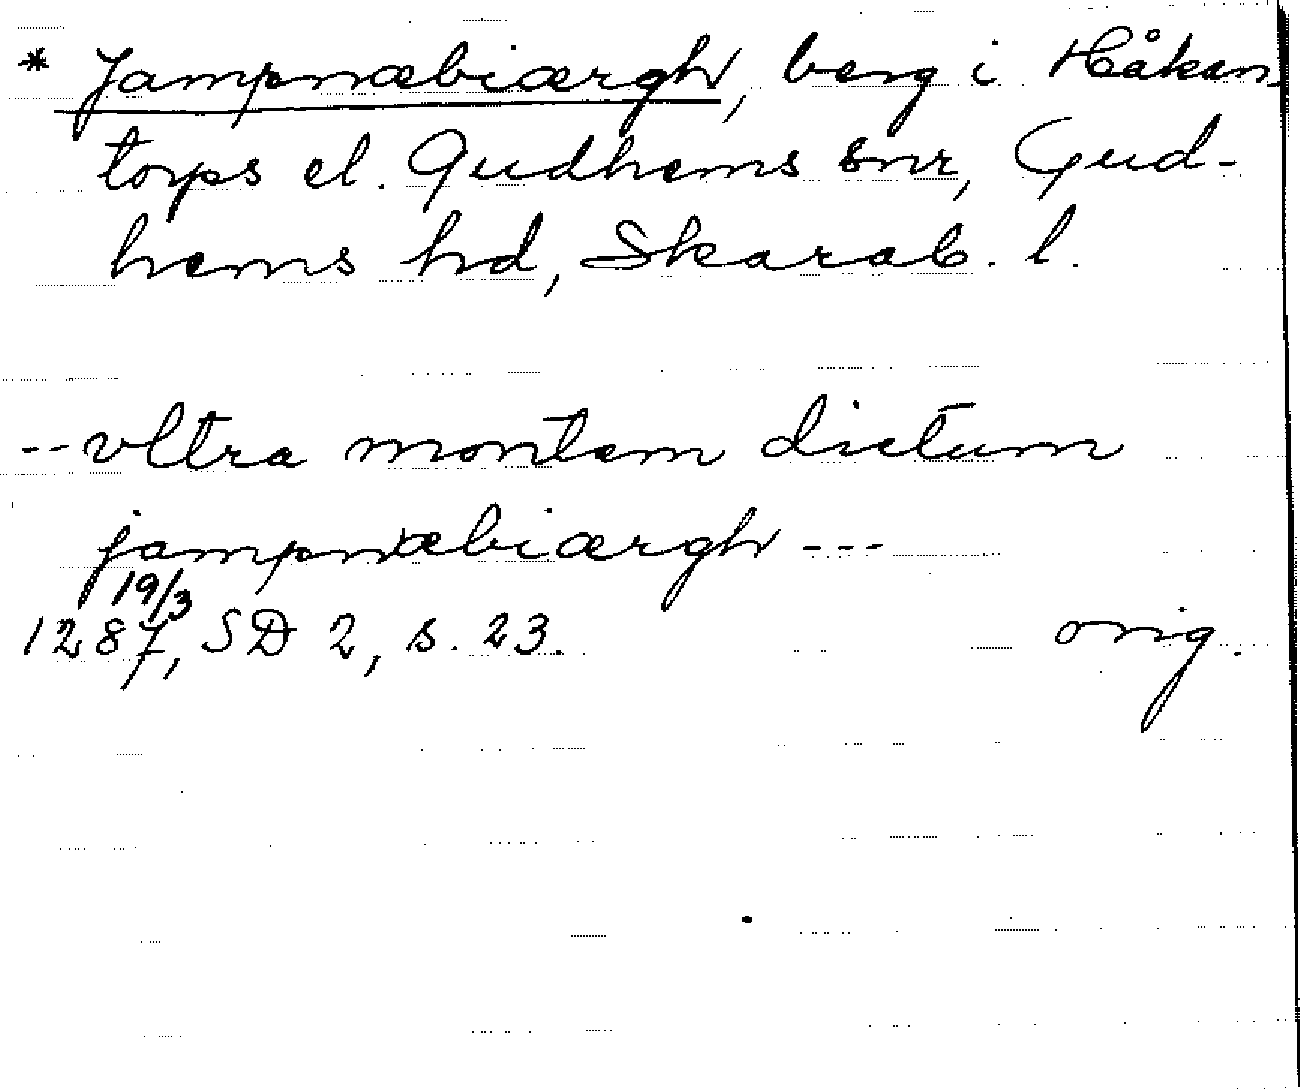 * Jampnæbiærgh, berg i Håkan
torps el. Gudhems snr, Gud-
hems hd, Skarab. l.
-- vltra montem dictum
jampnæbiærgh ---
19/3
1287, SD 2, s. 23. orig.